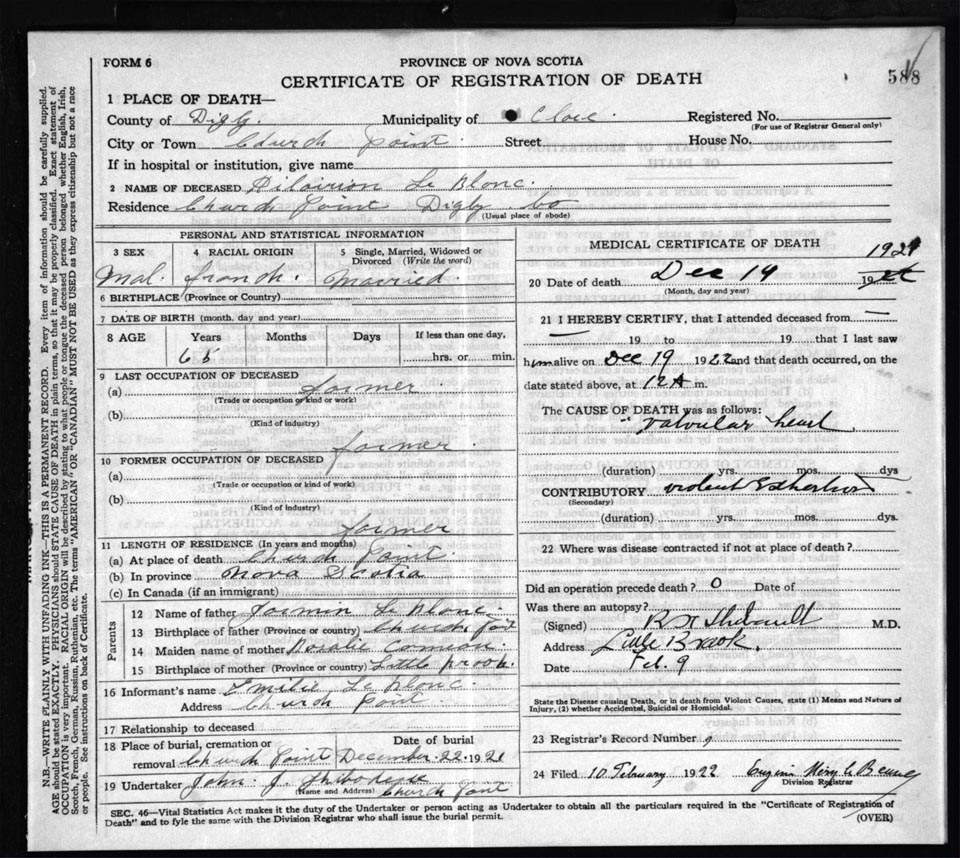 FORM 6
PROVINCE OF NOVA SCOTIA
588
CERTIFICATE OF REGISTRATION OF DEATH
1 PLACE OF DEATH—
County of Digby. Municipality of Clare. Registered No.
(For use of Registrar General only)
City or Town Church Point Street House No.
If in hospital or institution, give name
2 NAME OF DECEASED Le Blanc.
Residence Church Point Digby Co
(Usual place of abode)
PERSONAL AND STATISTICAL INFORMATION
3 SEX 4 RACIAL ORIGIN 5 Single, Married, Widowed or Divorced (Write the word)
Mal. french. Married.
6 BIRTHPLACE (Province or Country)
7 DATE OF BIRTH (month, day and year)
8 AGE Years Months Days If less than one day,
hrs. or min.
9 LAST OCCUPATION OF DECEASED
(a) farmer
(Trade or occupation or kind or work)
(b)
(Kind of industry)
farmer
10 FORMER OCCUPATION OF DECEASED
(a)
(Trade or occupation or kind of work)
(b)
(Kind of industry)
farmer
11 LENGTH OF RESIDENCE (In years and months)
(a) At place of death Church Point.
(b) In province Nova Scotia
(c) In Canada (if an immigrant)
Parents
12 Name of father Le Blanc.
13 Birthplace of father (Province or country) Church Point
14 Maiden name of mother Rosalie Comeau
15 Birthplace of mother (Province or country) Little Brook.
16 Informant's name Emilie Le Blanc.
Address Church Point
17 Relationship to deceased
18 Place of burial, cremation or removal Church Point Date of burial December. 22. 1921
19 Undertaker John. J. Thibodeau
(Name and Address) Church Point
MEDICAL CERTIFICATE OF DEATH
1921
20 Date of death Dec 19 19
(Month, day and year)
21 I HEREBY CERTIFY, that I attended deceased from —
— 19 to 19 that I last saw
him alive on Dec 19 1922 and that death occurred, on the
date stated above, at 12 A m.
The CAUSE OF DEATH was as follows:
valvular heart
(duration) yrs. mos. dys
CONTRIBUTORY violent Exhertion
(Secondary)
(duration) yrs. mos. dys.
22 Where was disease contracted if not at place of death?
Did an operation precede death? O Date of
Was there an autopsy?
(Signed) Thibault M.D.
Address Little Brook.
Date Feb. 9
State the Disease causing Death, or in death from Violent Causes, state (1) Means and Nature of
Injury, (2) whether Accidental, Suicidal or Homicidal.
23 Registrar's Record Number 9
24 Filed 10 February 1922
Division Registrar
SEC. 46—Vital Statistics Act makes it the duty of the Undertaker or person acting as Undertaker to obtain all the particulars required in the "Certificate of Registration of
Death" and to fyle the same with the Division Registrar who shall issue the burial permit.
(OVER)
N.B.—WRITE PLAINLY WITH UNFADING INK—THIS IS A PERMANENT RECORD. Every item of information should be carefully supplied.
AGE should be stated EXACTLY. PHYSICIANS should STATE CAUSE OF DEATH in plain terms, so that it may be properly classified. Exact statement of
OCCUPATION is very important. RACIAL ORIGIN will be described by stating to what people or tongue the deceased person belonged whether English, Irish,
Scotch, French, German, Russian, Ruthenian, etc. The terms "AMERICAN" OR "CANADIAN" MUST NOT BE USED as they express citizenship but not a race
or people. See instructions on back of Certificate.